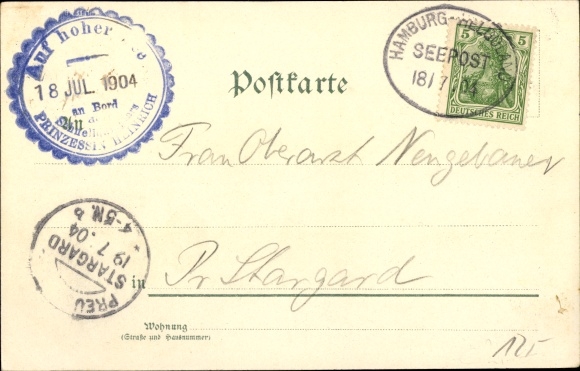 Auf hoher See
18 JUL. 1904
an Bord
des
Schnelldampfers
PRINZESSIN HEINRICH
An
Postkarte
HAMBURG-HELGOLAND
SEEPOST
18/7 04
5 5
DEUTSCHES REICH
Frau Oberarzt Neugebauer
PREU STARGARD
19 7 04
4-5N. b
in Pr Stargard
Wohnung
(Straße und Hausnummer)